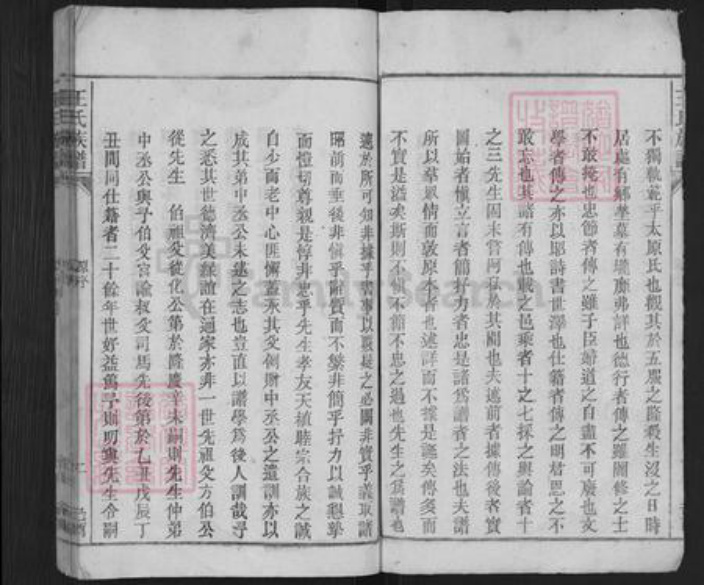 不獨軌範乎太原氏也觀其於五服之隆殺生沒之日時
居處有鄉塋墓有壠靡弗詳也德行者傳之雖閨修之士
不敢掩也忠節者傳之雖子臣婦道之自盡不可廢也文
學者傳之亦以昭詩書世澤也仕籍者傳之明君恩之不
敢忘也其譜有傳也載之邑乘者十之七採之輿論者十
之三先生固未嘗阿私於其間也夫述前者據傳後者實
圖始者愼立言者簡抒力者忠是諸爲譜者之法也夫譜
所以萃眾情而敦原本者也述詳而不據是誣矣傳多而
不實是諂矣斯則不愼不簡不忠之過也先生之爲譜也
遠於所可知非據乎書事以覈疑之必闕非實乎義取諸
昭前而垂後非愼乎辭質而不繁非簡乎抒力以誠懇摯
而愷切尊親是惇非忠乎先生孝友天植睦宗合族之誠
自少而老中心匪懈蓋承其父側財中丞公之遺訓亦以
成其弟中丞公未逮之志也豈直以譜學爲後人訓哉予
之悉其世德濟美綠誼在通家亦非一世先祖父方伯公
從先生 伯祖父從化公第於嘉慶辛未嗣則先生仲弟
中丞公與予伯父宮諭叔父司馬先後第於乙丑戊辰丁
丑間同仕籍者二十餘年世好益篤予則叨與先生令嗣
王氏族譜
原序